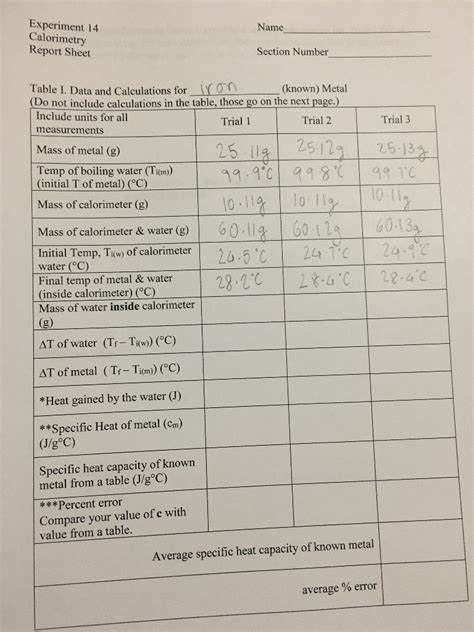 Experiment 14 Name
Calorimetry
Report Sheet Section Number
Table I. Data and Calculations for iron (known) Metal
(Do not include calculations in the table, those go on the next page.)
Include units for all measurements Trial 1 Trial 2 Trial 3
Mass of metal (g) 25.11g 25.12g 25.13g
Temp of boiling water (Ti(m)) (initial T of metal) (°C) 99.9°C 99.8°C
Mass of calorimeter (g) 10.11g 10.11g 10.11g
Mass of calorimeter & water (g) 60.11g 60.12g 60.13g
Initial Temp, Ti(w) of calorimeter water (°C) 24.5°C
Final temp of metal & water (inside calorimeter) (°C) 28.2°C 28.4°C 28.4°C
Mass of water inside calorimeter (g)
ΔT of water (Tf – Ti(w)) (°C)
ΔT of metal ( Tf – Ti(m)) (°C)
*Heat gained by the water (J)
**Specific Heat of metal (cm) (J/g°C)
Specific heat capacity of known metal from a table (J/g°C)
***Percent error
Compare your value of c with value from a table.
Average specific heat capacity of known metal
average % error